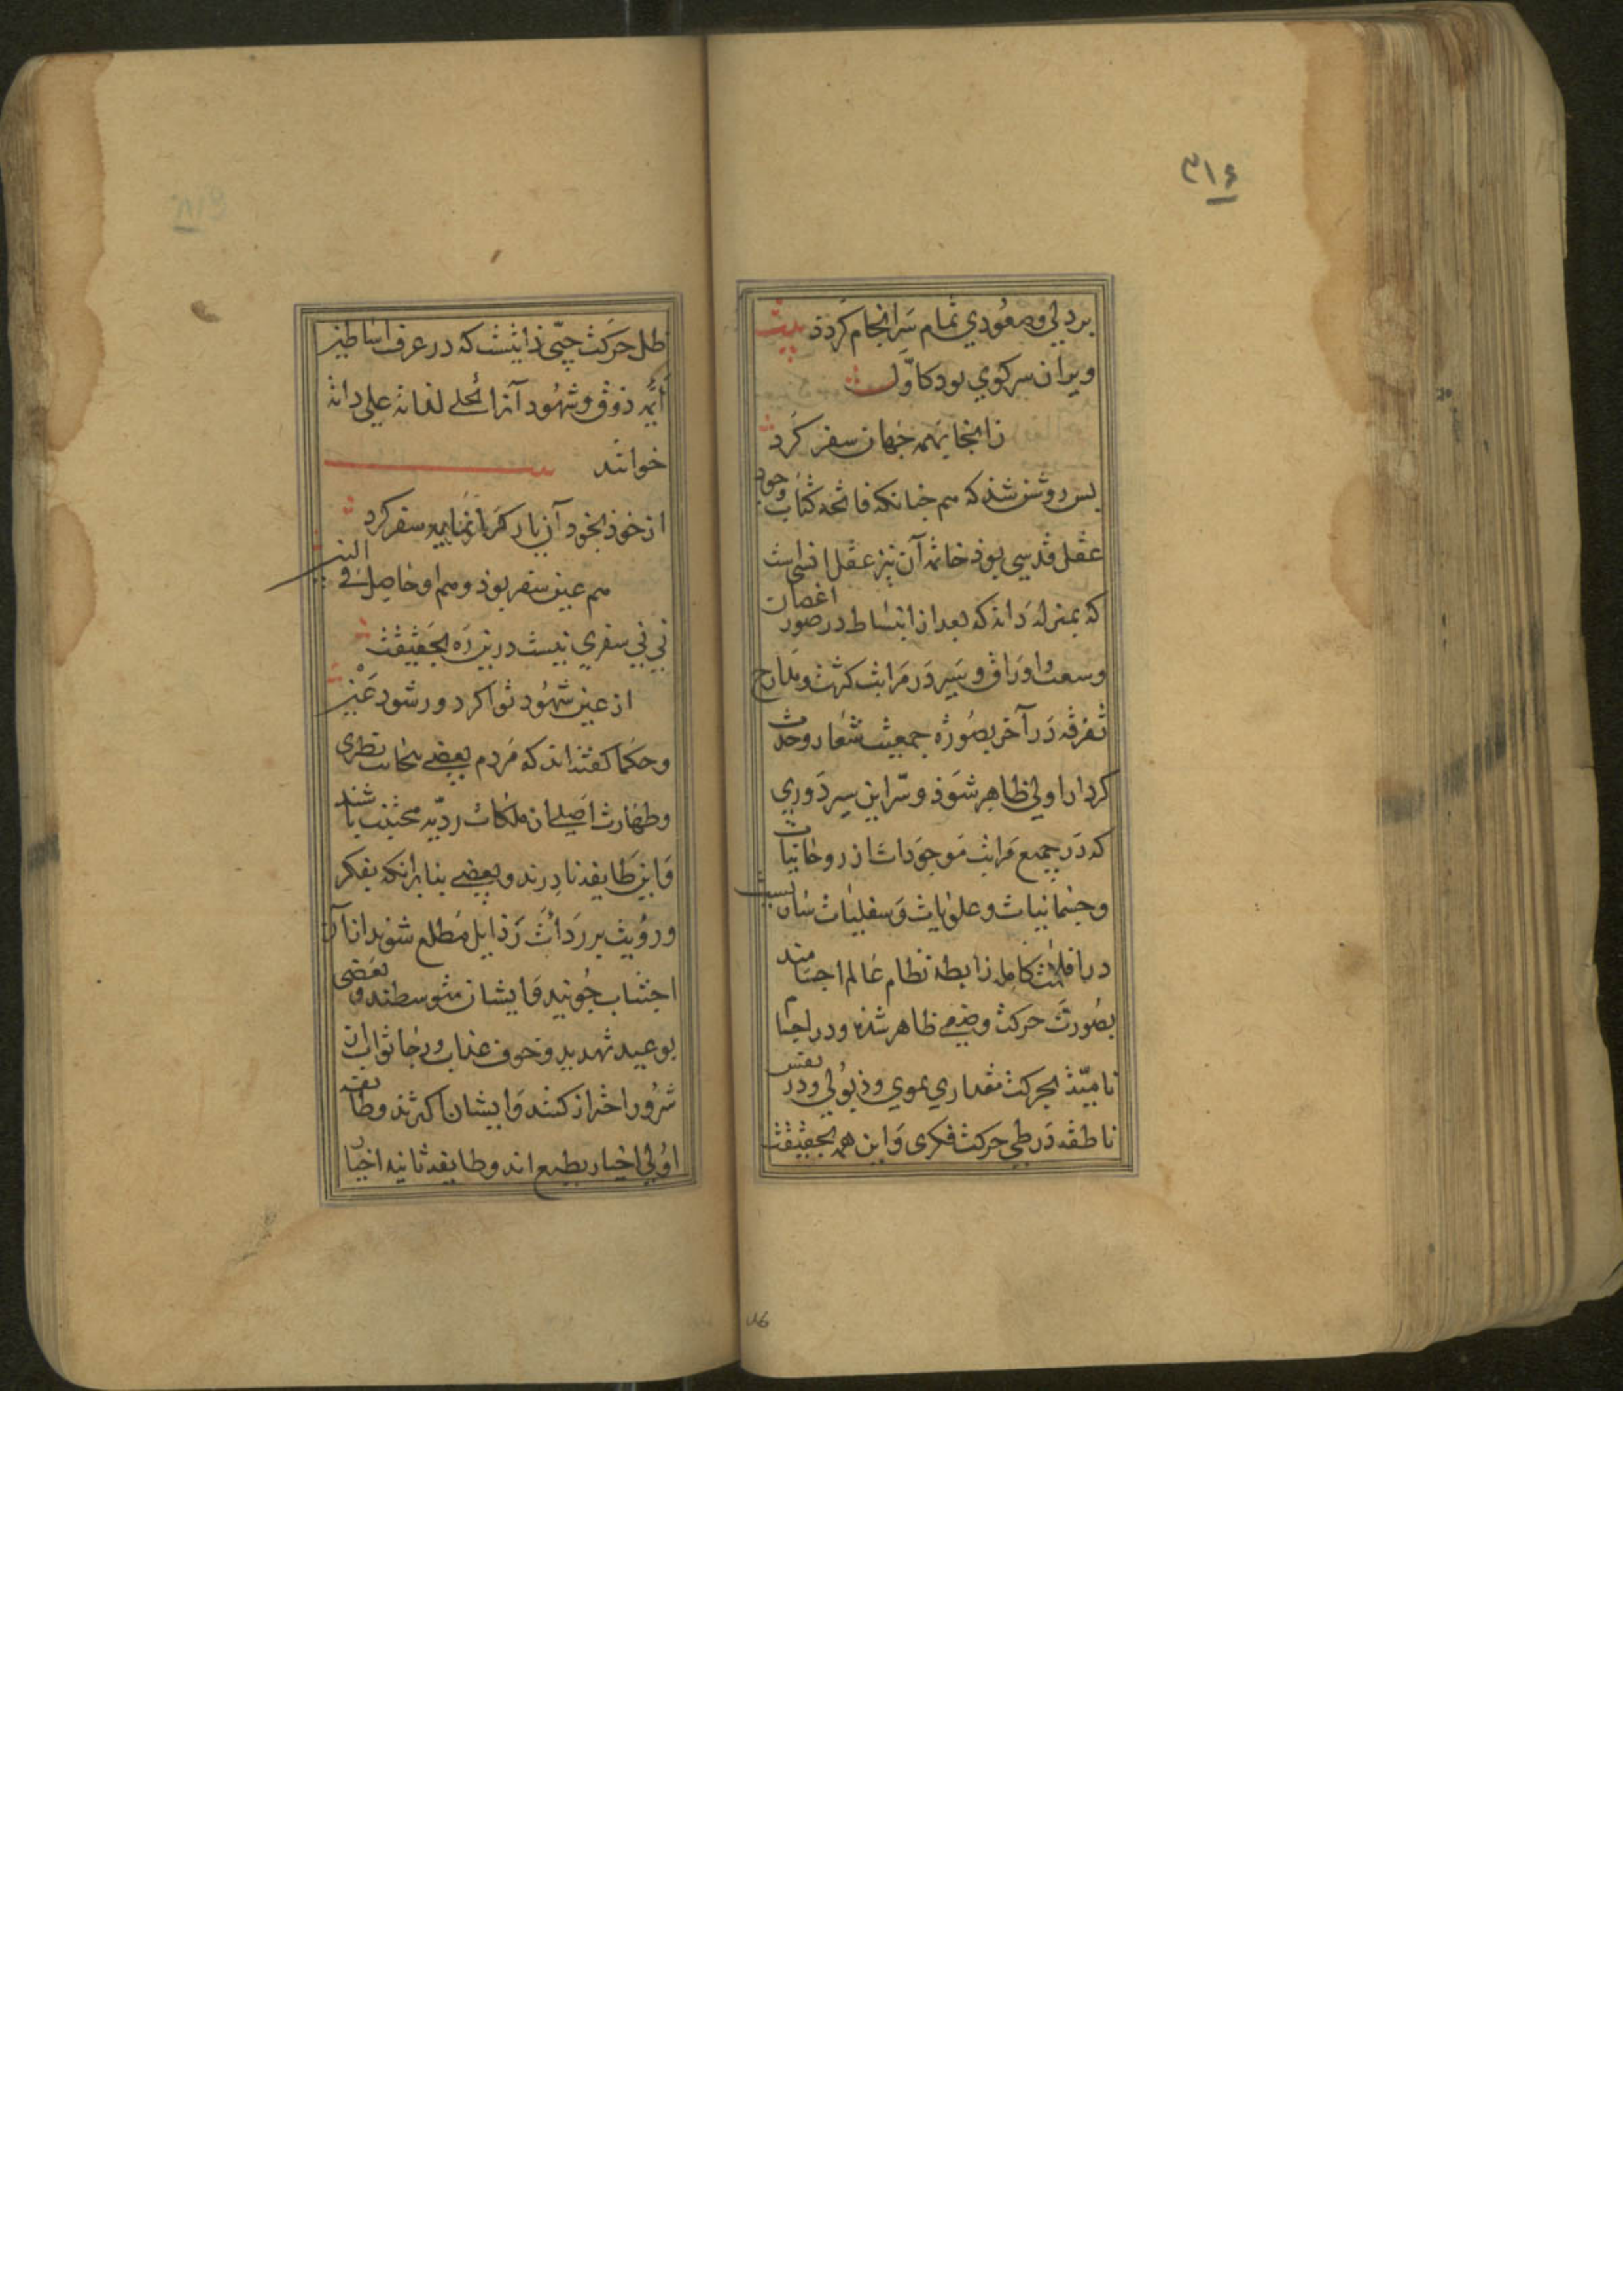 ۳۱۶
بردلی وصعودی تمام سرانجام کردد بیت
ویران سرکوی بود کاول
زانجا بهمه جهان سفر کرد
پس روشن شد که هم چنانکه فاتحه کتاب وجود
عقل قدسی بوذ خاتمه آن نیز عقل انسی است
که بمنزله دانه که بعد از انبساط در صور اغصان
وسعت اوراق و سیر در مراتب کثرت و مدارج
تفرقه در آخر بصورة جمعیت شعار وحدت
کردار اولی ظاهر شوذ و سر این سیر دوری
که در جمیع مراتب موجودات از روحانیات
و جسمانیات و علویات و سفلیات نسبت
در افلاک کامله رابطه نظام عالم اجسامند
بصورت حرکت وضعی ظاهر شذه و در اجسام
نامیه بحرکت مقداری نموی و ذبولی و در نفس
ناطقه در طی حرکت فکری و این همه بحقیقت
ظل حرکت حبی ذاتیست که در عرف اساطین
أئمه ذوق و شهود آنرا تجلی لذاته علی ذاته
خوانند
از خوذ بخود آن یار سفر کرد
هم عین سفر بوذ و هم او حاصل فی البین
نی نی سفری نیست درین ره بحقیقت
از عین شهود تو اکر دور شود غین
و حکما کفته‌اند که مردم بعضی بنجابت فطری
و طهارت اصلی از ملکات ردیه مجتنب باشند
و این طایفه نادرند و بعضی بنابرانکه بفکر
و رویت بر ردائت رذایل مطلع شوند از آن
اجتناب جویند و ایشان متوسطند و بعضی
بوعید تهدید و خوف عذاب و رجا ثواب از
شرور احتراز کنند و ایشان اکثرند و طایفه
اولی اخیار بطبع اند و طایفه ثانیه اخیار